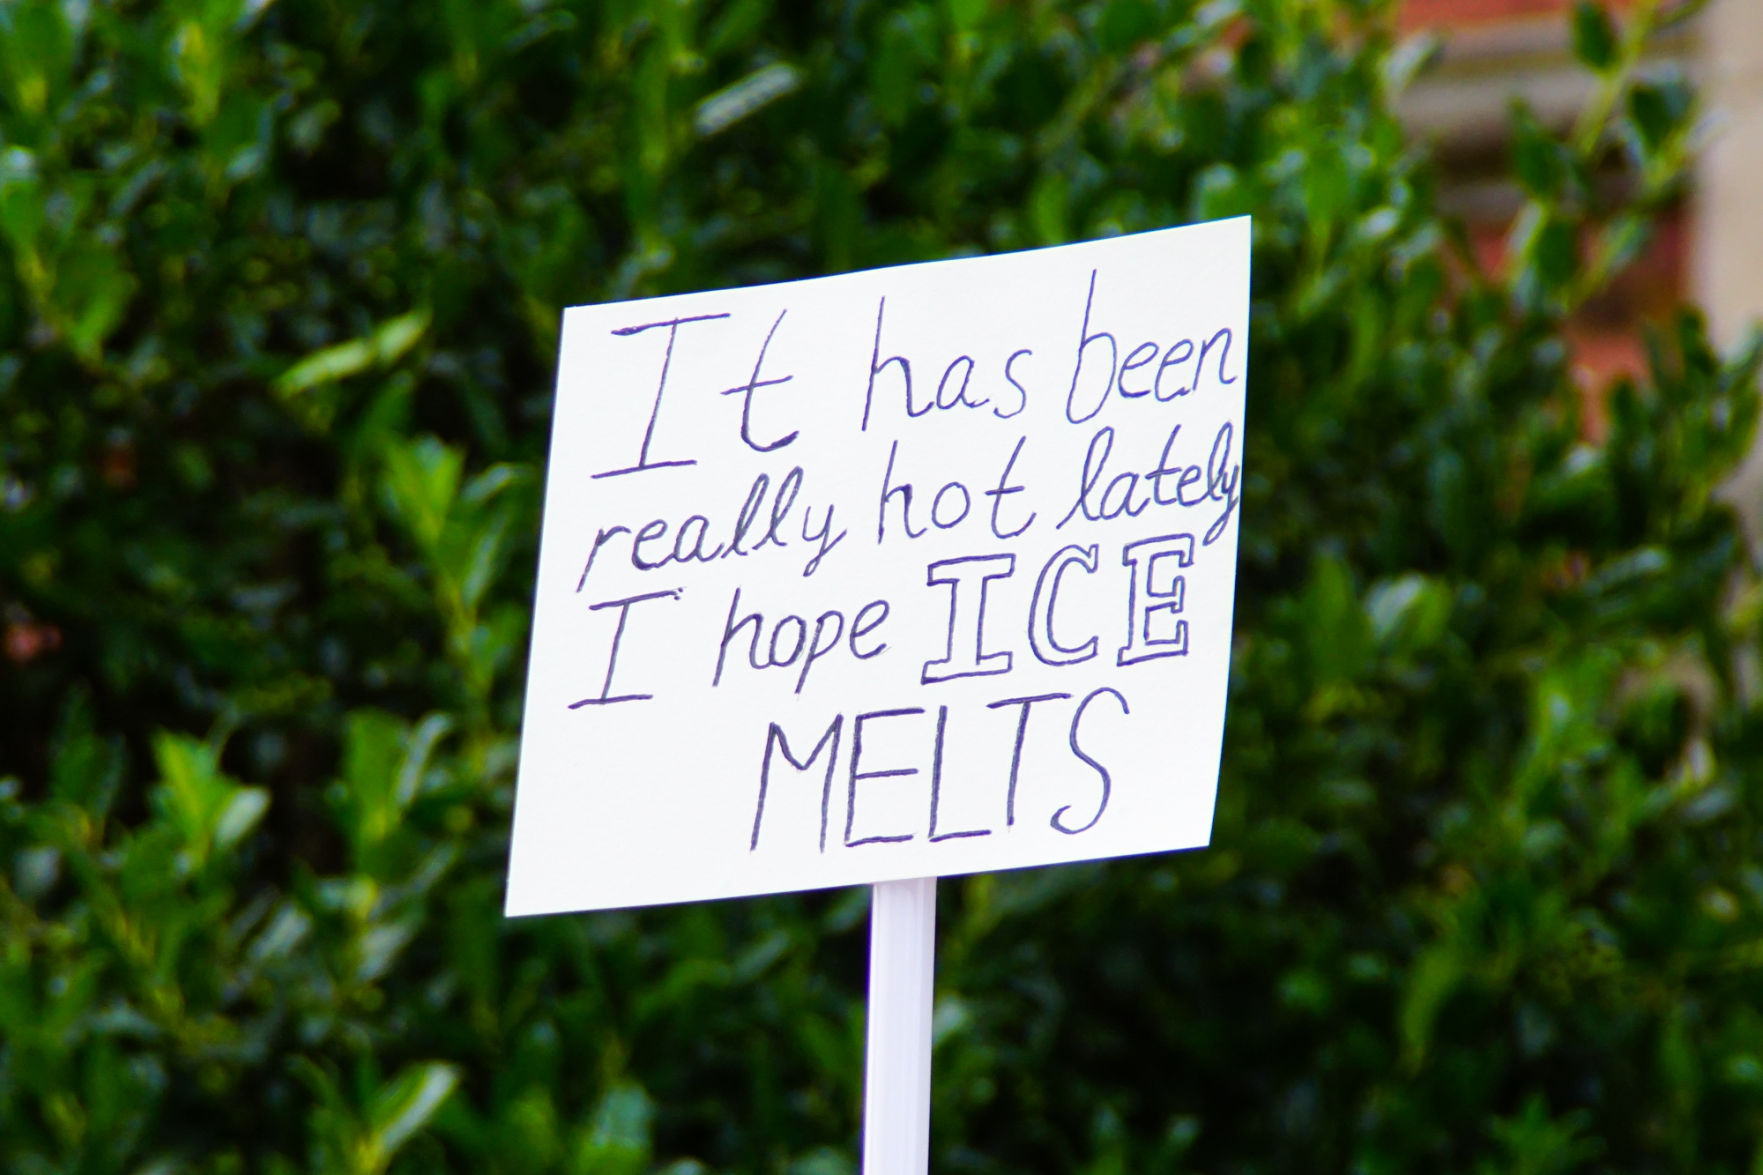 It has been
really hot lately
I hope ICE
MELTS